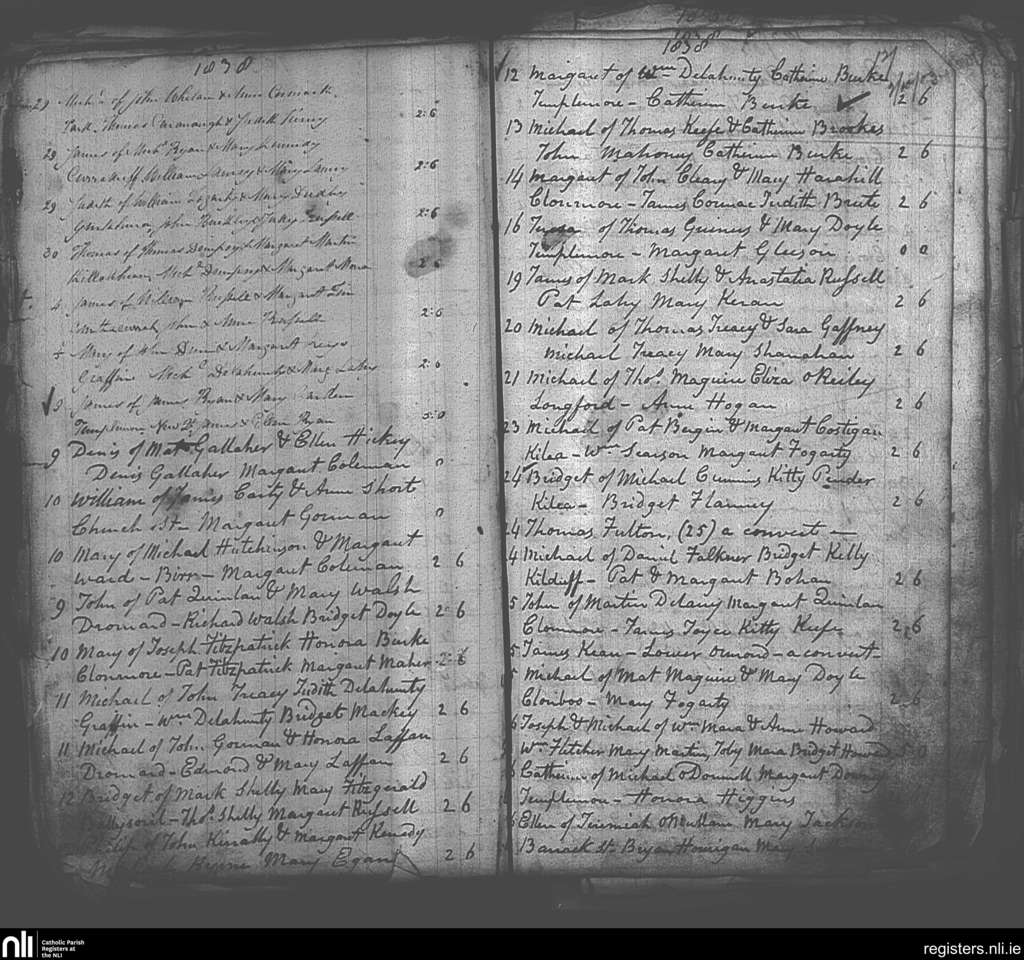 1838
29 Mich.l of John Whelan & Anne Cormack
Park Thomas Cavanaugh & Judith 2:6
29 James of Mich.l Ryan & Mary Kennedy
William & Mary 2:6
29 Judith of William Fogarty & Mary
John Buckley & Russell 2:6
30 Thomas of Thomas Dempsey & Margaret Martin
Mich.l Dempsey & Margaret Mara 2:6
4 James of William Russell & Margaret
John & Anne Russell 2:6
Mary of John Dunn & Margaret
Graffin Mich.l Delahunty & Marg Lahy 2:0
9 James of James Ryan & Mary
Templemore New St James & Ellen Ryan 5:0
9 Denis of Mat Gallaher & Ellen Hickey
Denis Gallaher Margaret Coleman 0
10 William of James Carty & Anne Short
Church St – Margaret Gorman 0
10 Mary of Michael Hutchinson & Margaret
Ward – Birr – Margaret Coleman 2 6
9 John of Pat Quinlan & Mary Walsh
Dromard – Richard Walsh Bridget Doyle 2 6
10 Mary of Joseph Fitzpatrick Honora Burke
Clonmore – Pat Fitzpatrick Margaret Maher 2 6
11 Michael of John Treacy Judith Delahunty
Graffin – Wm Delahunty Bridget Mackey 2 6
11 Michael of John Gorman & Honora Laffan
Dromard – Edmond & Mary Laffan 2 6
12 Bridget of Mark Shelly Mary Fitzgerald
Thos. Shelly Margaret Russell 2 6
of John Kinally & Margaret Kenedy
Byrne Mary Egan 2 6
1838
12 Margaret of Wm Delahunty Catherine Burke
Templemore – Catherine Burke 2 6
13 Michael of Thomas Keefe & Catherine Brookes
John Mahoney Catherine Burke 2 6
14 Margaret of John Cleary & Mary Harahill
Clonmore – James Cormac Judith Brute 2 6
16 Teresa of Thomas Guiness & Mary Doyle
Templemore – Margaret Gleeson 0 0
19 James of Mark Shelly & Anastatia Russell
Pat Lahy Mary Keran 2 6
20 Michael of Thomas Treacy & Sara Gaffney
Michael Treacy Mary Shanahan 2 6
21 Michael of Thos. Maguire Eliza O Reiley
Longford – Anne Hogan 2 6
23 Michael of Pat Bergin & Margaret Costigan
Kilea – Wm Searson Margaret Fogarty 2 6
24 Bridget of Michael Cummins Kitty Pender
Kilea – Bridget Flannery 2 6
24 Thomas Fulton, (25) a convert –
4 Michael of Daniel Falkner Bridget Kelly
Kilduff – Pat & Margaret Bohan 2 6
5 John of Martin Delany Margaret Quinlan
Clonmore – James Joyce Kitty Keefe 2 6
5 James Kean – Lower Ormond – a convert –
Michael of Mat Maguire & Mary Doyle
Cloibos – Mary Fogarty 2 6
6 Joseph & Michael of Wm Mara & Anne Howard
Wm Fletcher Mary Martin, Toby Mara Bridget Howard 5 0
6 Catherine of Michael O Donnell Margaret Downey
Templemore – Honora Higgins
Ellen of Jeremiah O Mullane Mary Jackson
Barrack St Bryan Horrigan Mary
nli Catholic Parish
Registers at
the NLI
registers.nli.ie